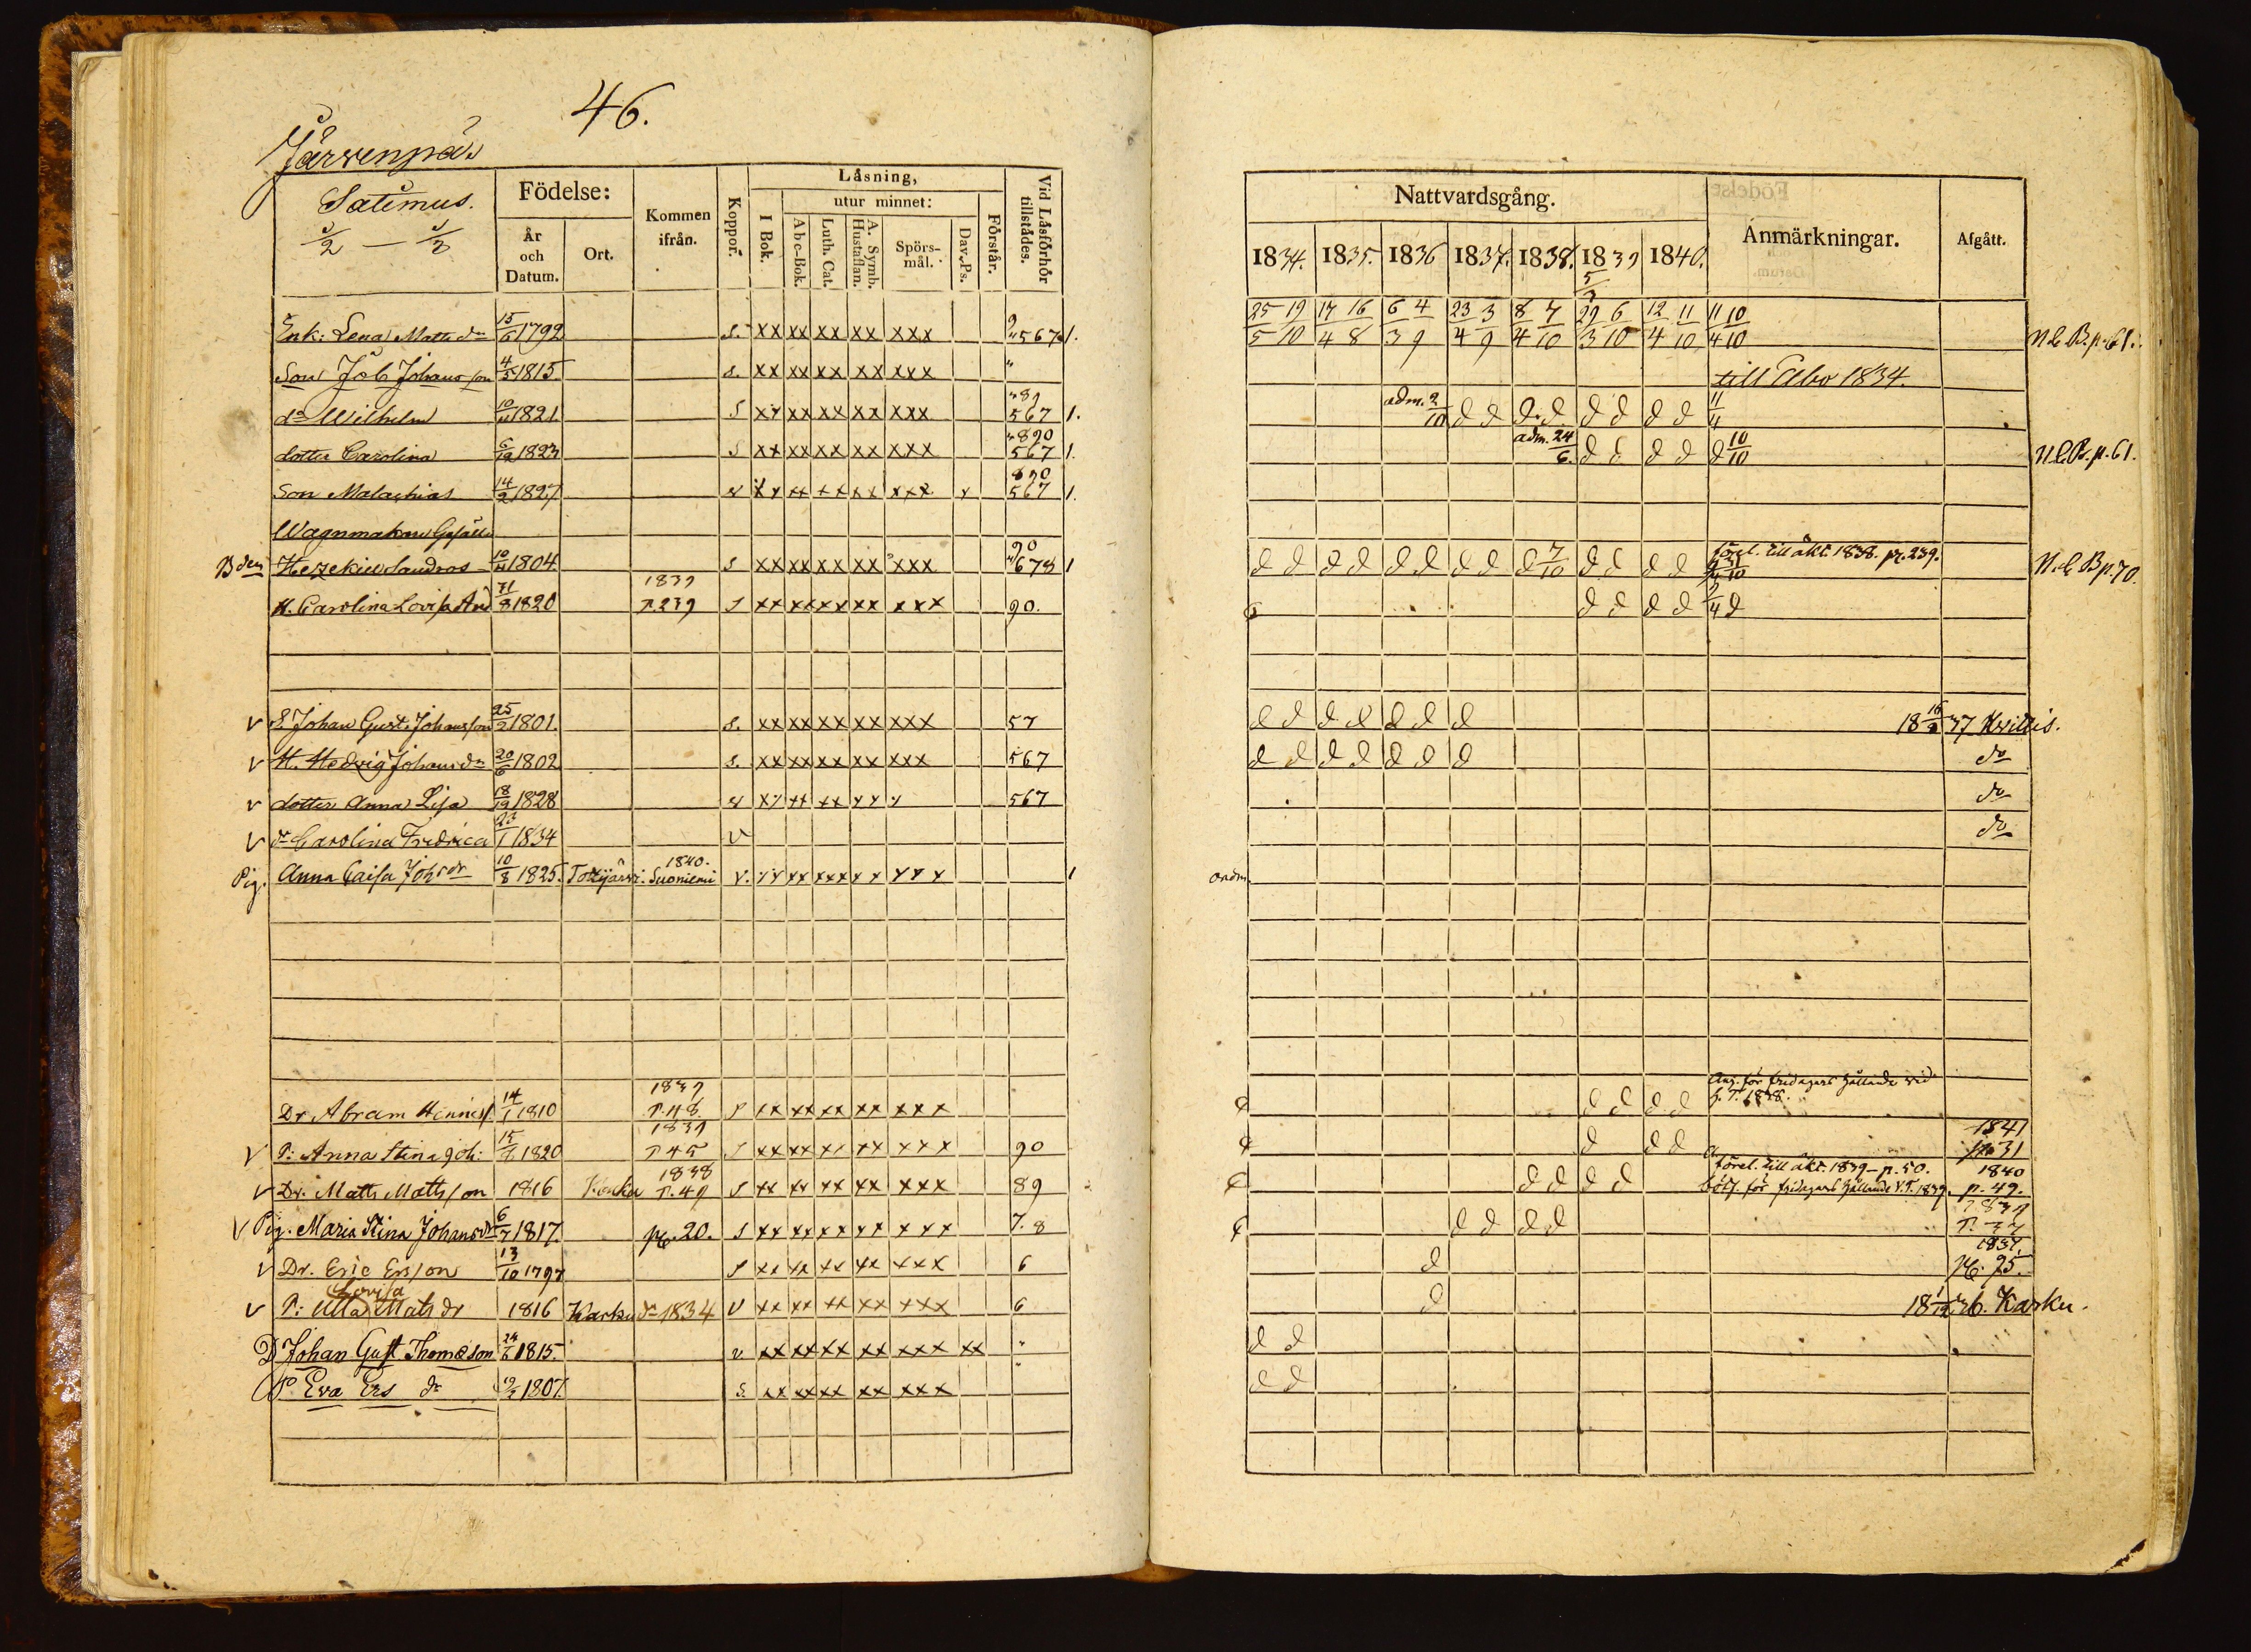 46.
Järvenpää
Satimus.
1/2 — 1/3
Födelse:
År och Datum.
Ort.
Kommen ifrån.
Koppor.
Läsning,
I Bok.
utur minnet:
Abc-Bok.
Luth. Cat.
A. Symb. Hustaflan.
Spörs-mål.
Dav. Ps.
Förstår.
Vid Läsförhör tillstädes.
Enk: Lena Matts dr 15/6 1792 s. xx xx xx xx xxx 567 1.
Son Job Johansson 4/5 1815. s. xx xx xx xx xxx "
do Wilhelm 10/11 1821 s xx xx xx xx xxx 567 1.
dotter Carolina 6/12 1823 s xx xx xx xx xxx 567 1.
Son Malachias 14/2 1827 v xx xx xx xx xxx x 567 1.
Wagnmakare Gesäll
Bden Hezekiel Sandroos 10/11 1804 s xx xx xx xx xxx 678 1
H. Carolina Lovisa And 31/8 1820 1839 P. 239 s xx xx xx xx xxx 90.
v S. Johan Gust. Johansson 25/2 1801. s. xx xx xx xx xxx 57
v H. Hedvig Johans dr 20/6 1802 s. xx xx xx xx xxx 567
v dotter Anna Lisa 18/12 1828 v xx xx xx xx x 567
v dr Carolina Fredrica 23/1 1834 v
Pig. Anna Caisa Joh:dr 10/8 1825. Tottijärvi. 1840. Suoniemi v. xx xx xxx xx xxx 1
Dr Abram Henriss. 14/1 1810 1839 P. 48. s xx xx xx xx xxx
v P: Anna Stina Joh: 1820 1839 P 45 s xx xx xx xx xxx 90
v Dr. Matts Mattsson 1816 1838 P. 49 s xx xx xx xx xxx 89
v Pig. Maria Stina Johansdr 6/7 1817 pg. 20. s xx xx xx xx xxx 7. 8
v Dr. Eric Ersson 13/10 1797 s xx xx xx xx xxx 6
Lovisa
v P: Ulla Mats dr 1816 Karku do 1834 v xx xx xx xx xxx 6
D Johan Gust. Thomæson 24/6 1815. v xx xx xx xx xxx xx "
P. Eva Ers dr 1807. s. xx xx xx xx xxx "
Nattvardsgång.
1834. 1835. 1836 1837. 1838. 1839 1840.
Anmärkningar.
Afgått.
25/5 19/10 17/4 16/8 6/3 4/9 23/4 3/9 8/4 7/10 29/3 6/10 12/4 11/10 11/4 10/10 N. C. B. p. 61.
till Åbo 1834.
adm. 2/10 d d d d d d d d 11/4
adm. 24/6. d d d d d 10/10 N. C. B. p. 61.
d d d d d d d d d 7/10 d d d d förel. till äkt. 1838. pg. 239. N. C. B p. 70
d d d d 2/4 d
d d d d d d d 18 16/3 37 Kxillis.
d d d d d d d do
do
do
d d d d
d d d 1841 pg. 31
d d d d förel. till äkt. 1839 - p. 50. 1840 p. 49.
d d d d P. 37
d 1837. pg. 25.
d 18 1/12 36. Karku.
d d
d d